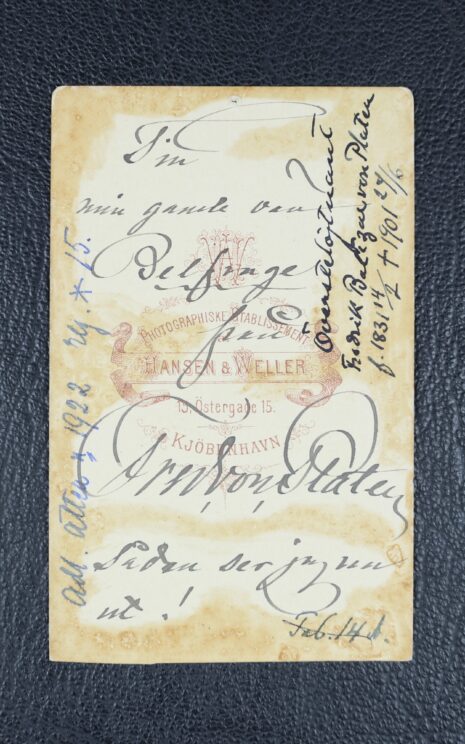 Till
min gamle vän
Belfrage
från
Fred. von Platen
Sådan ser jag nu
ut.!
Feb. 14 d.
PHOTOGRAPHISKE ETABLISSEMENT
HANSEN & WELLER
15. Østergade 15.
KJÖBENHAVN
Överstelöjtnant
Fredrik Baltzar von Platen
f. 1831 14/2 † 1901 24/6
Adl. ätten * 1922 rg. * 15.